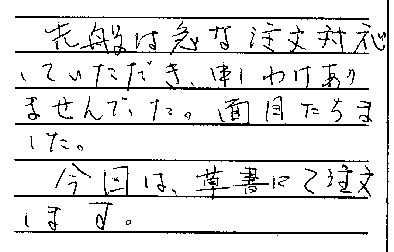 先般は急な注文対応
していただき、申しわけあり
ませんでした。面目たちま
した。
今回は、草書にて注文
します。